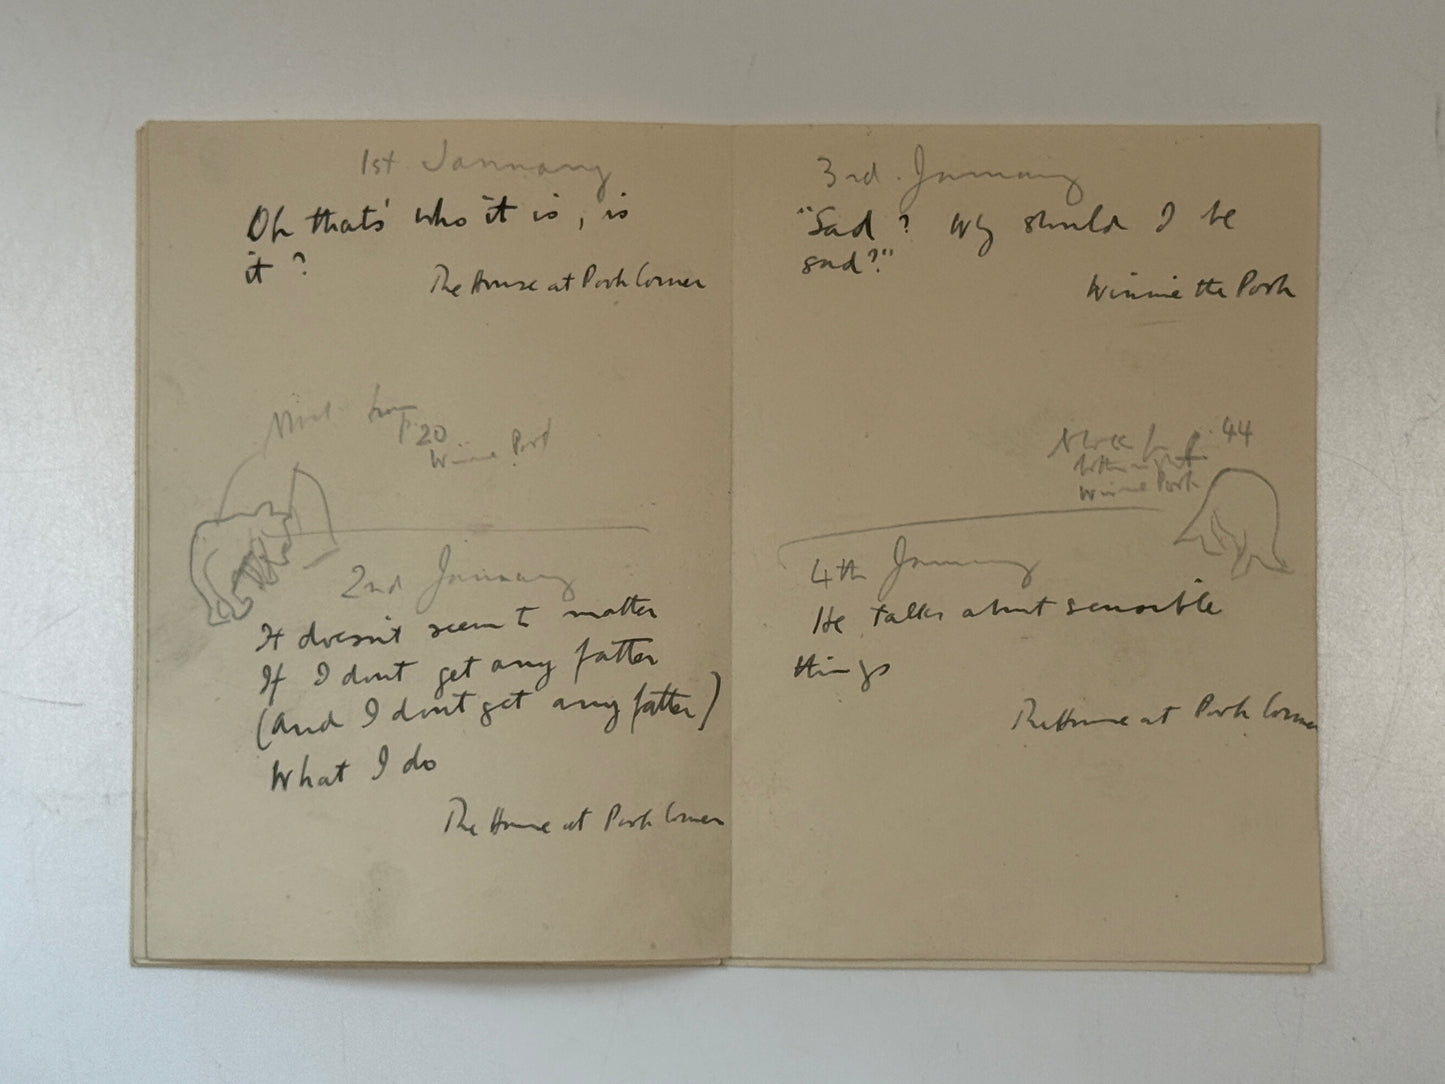 1st January
Oh that's who it is, is
it?
The House at Pooh Corner
from
p. 20
Winnie Pooh
2nd January
It doesn't seem to matter
If I don't get any fatter
(And I don't get any fatter)
What I do
The House at Pooh Corner
3rd January
"Sad? Why should I be
sad?"
Winnie the Pooh
p. 44
Winnie Pooh
4th January
He talks about sensible
things
The House at Pooh Corner